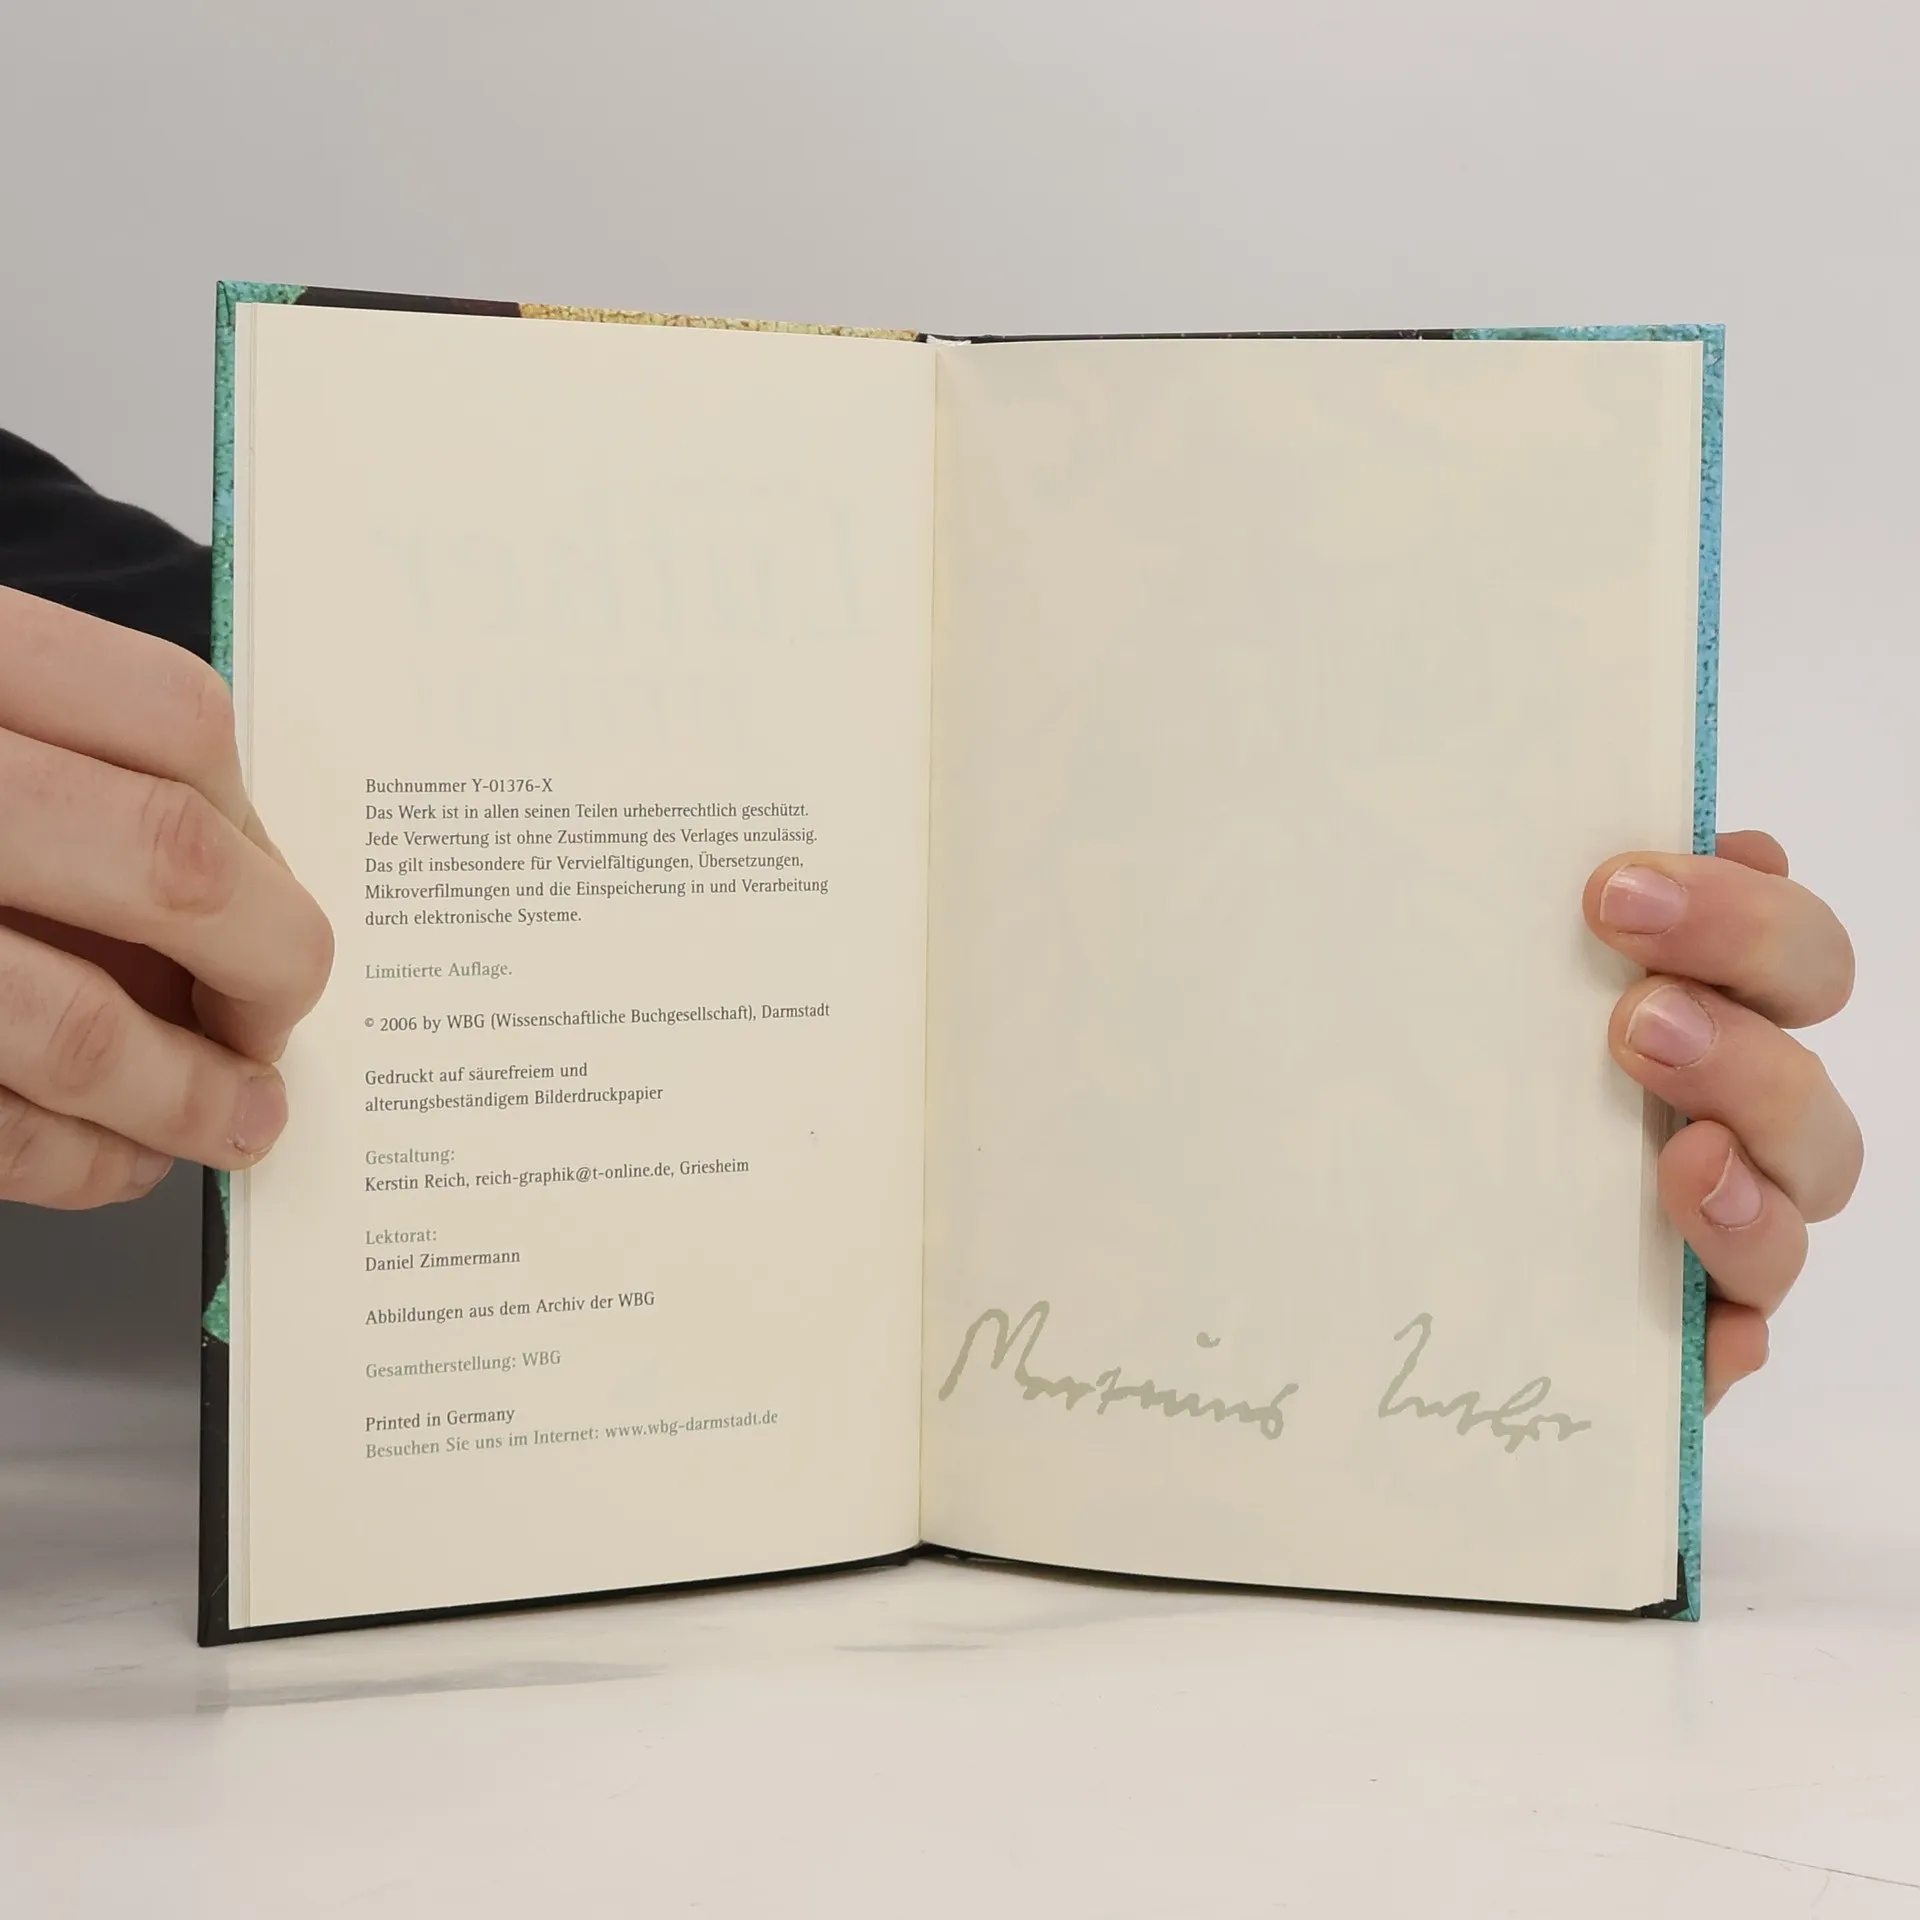 Buchnummer Y-01376-X
Das Werk ist in allen seinen Teilen urheberrechtlich geschützt.
Jede Verwertung ist ohne Zustimmung des Verlages unzulässig.
Das gilt insbesondere für Vervielfältigungen, Übersetzungen,
Mikroverfilmungen und die Einspeicherung in und Verarbeitung
durch elektronische Systeme.
Limitierte Auflage.
© 2006 by WBG (Wissenschaftliche Buchgesellschaft), Darmstadt
Gedruckt auf säurefreiem und
alterungsbeständigem Bilderdruckpapier
Gestaltung:
Kerstin Reich, reich-graphik@t-online.de, Griesheim
Lektorat:
Daniel Zimmermann
Abbildungen aus dem Archiv der WBG
Gesamtherstellung: WBG
Printed in Germany
Besuchen Sie uns im Internet: www.wbg-darmstadt.de
Martinus Luther